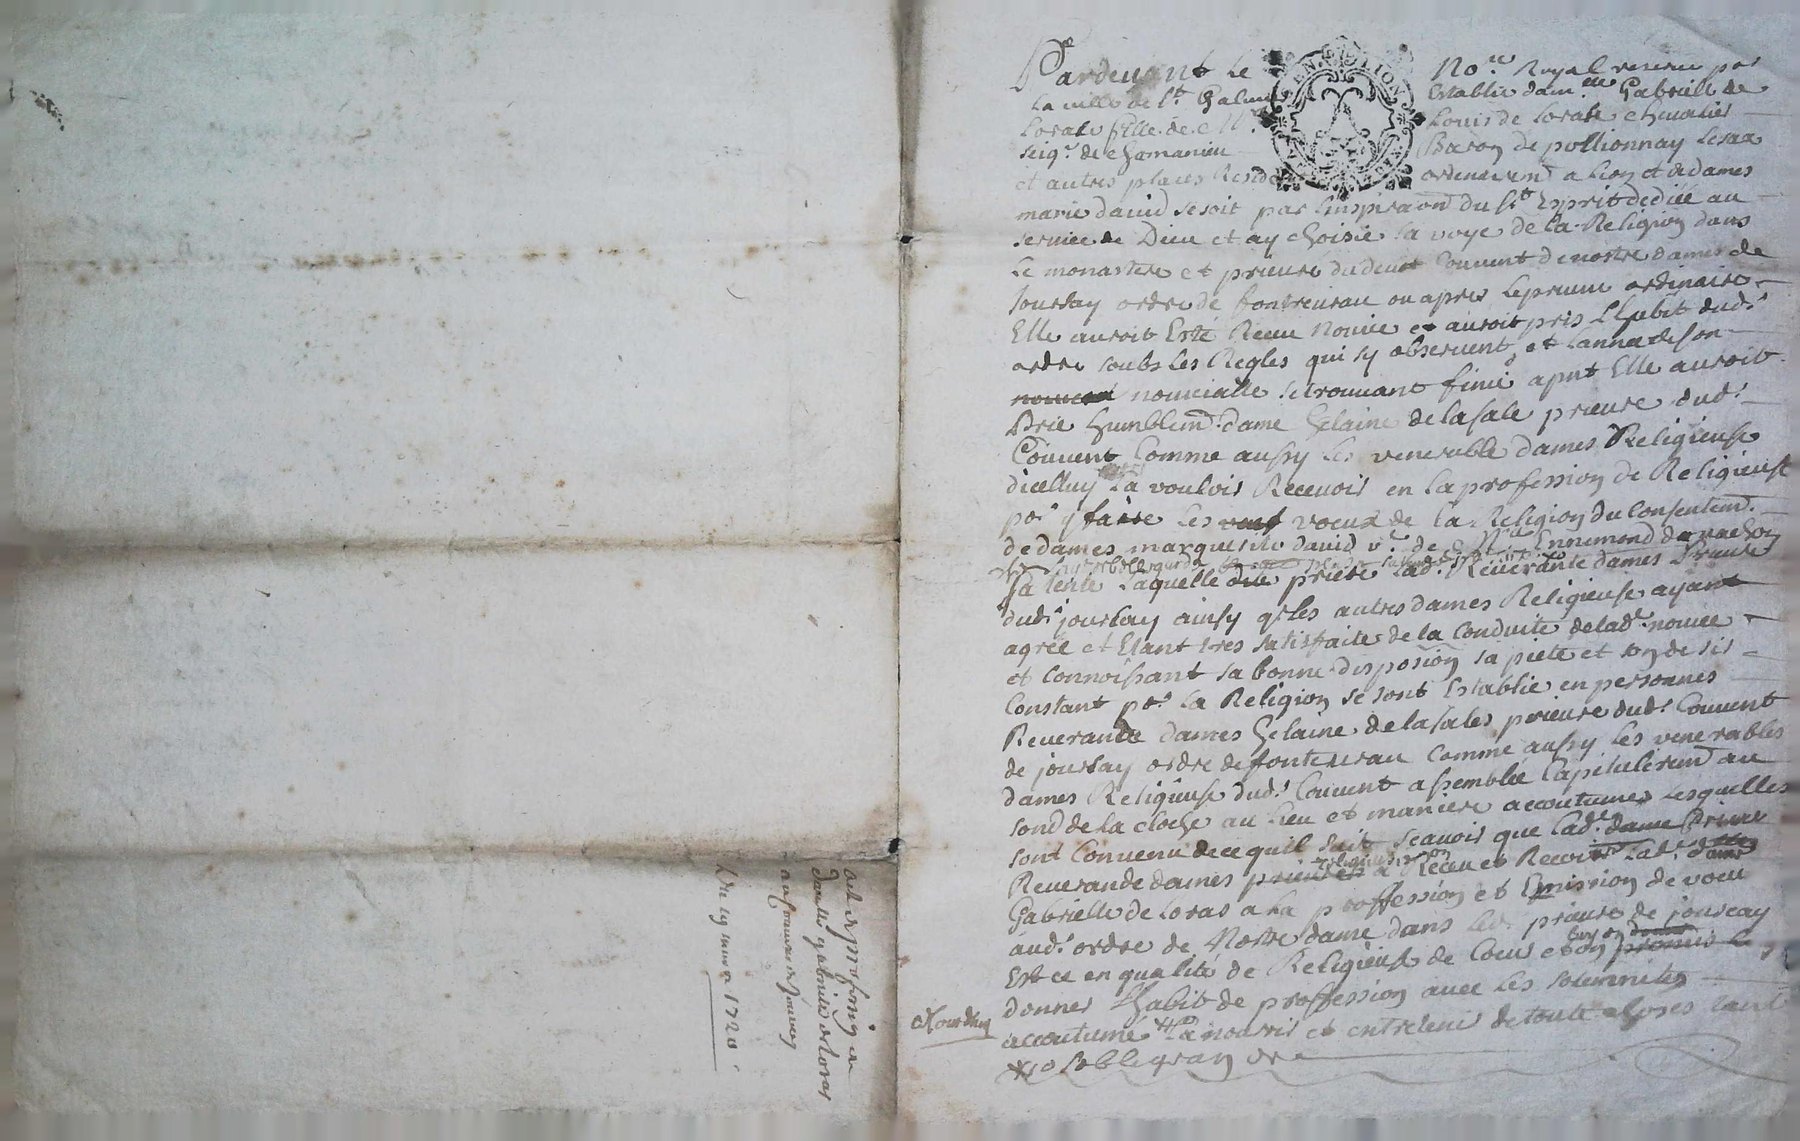 acte de profession de
damelle gabrielle de loras
au couvent de Jourcey
Du 19 mars 1720
Pardevant le No.re Royal reservé por
la ville de St. Galmier establie dam.lle Gabrielle de
Loras fille de Louis de Loras chevalier
seig.r de chamanieu Baron de pollionnay
et autres places Reside ordinairemt a Lion et de dames
marie david se soit par linspiraon du St. Esprit dediée au
service de Dieu et ay choisie la voye de la Religion dans
le monastere et prieuré du devot Couvent de nostre dames de
Joursay ordre de fontevrau ou apres lepreuve ordinaire
Elle auroit Esté Receu Novice et auroit pris Lhabit dud.t
ordre soubs les Regles qui sy observent et lannee de son
novicialle se trouvant finie apnt Elle auroit
Prié humblemt. dame helaine de la sale prieure dud.t
Couvent Comme aussy les venerable dames Religieuse
dicelluy la vouloir Recevoir en la profession de Religieuse
po.r y faire les voeux de la Religion du Consentemt.
de dames marguerite david v.e de Ennemond de vachon
sa tente laquelle prieré lad.e Reverante dames Prieure
dud.t joursay ainsy q. les autres dames Religieuse ayant
agréé et Etant tres satisfaite de la Conduite de lad.e novice
et Connoissant sa bonne disposion sa pieté et son desir
Constant po.r la Religion se sont establie en personnes
Reverande dames helaine de la sales prieure dud.t Couvent
de joursay ordre de fontevrau Comme aussy les venerables
dames Religieuse dud.t Couvent assemblée Capituleremt au
sond de la cloche au lieu et maniere accoutumée lesquelles
sont Convenu de ce quil suit scavoir que lad.e dame Prieure
Reverande dames Receu et Recoit lad.e
Gabrielle de Loras a la proffession et Emission de voeu
aud.t ordre de Nostre dame dans led. prieuré de jourcay
Et ce en qualité de Religieuse de Coeur et on promis
donner Lhabit de proffession avec les solemnites
accoutumé La nourir et entretenir de toute choses tant